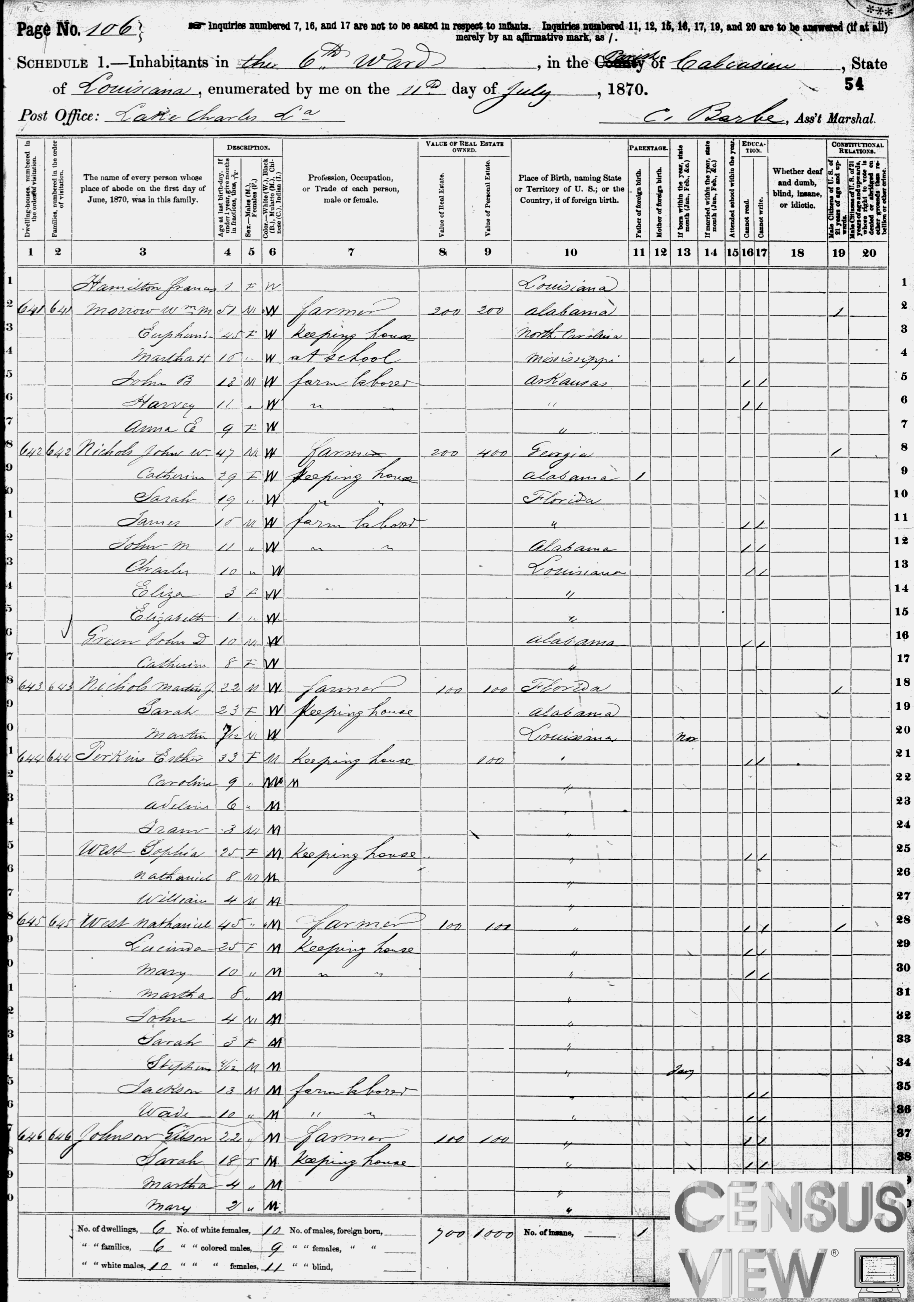 Page No. 106
Inquiries numbered 7, 16, and 17 are not to be asked in respect to infants. Inquiries numbered 11, 12, 15, 16, 17, 19, and 20 are to be answered (if at all) merely by an affirmative mark, as /.
SCHEDULE 1.—Inhabitants in the 6th Ward, in the County Parish of Calcasieu, State
of Louisiana, enumerated by me on the 11th day of July, 1870.
54
Post Office: Lake Charles La
C. Barbe, Ass't Marshal.
Dwelling-houses, numbered in the order of visitation.
Families, numbered in the order of visitation.
The name of every person whose place of abode on the first day of June, 1870, was in this family.
DESCRIPTION.
Sex.—Males (M.), Females (F.)
Profession, Occupation, or Trade of each person, male or female.
VALUE OF REAL ESTATE OWNED.
Value of Real Estate.
Value of Personal Estate.
Place of Birth, naming State or Territory of U. S.; or the Country, if of foreign birth.
PARENTAGE.
Father of foreign birth.
Mother of foreign birth.
If born within the year, state month (Jan., Feb., &c.)
If married within the year, state month (Jan., Feb., &c.)
Attended school within the year.
EDUCATION.
Cannot read.
Cannot write.
Whether deaf and dumb, blind, insane, or idiotic.
CONSTITUTIONAL RELATIONS.
1 2 3 4 5 6 7 8 9 10 11 12 13 14 15 16 17 18 19 20
Hamilton Francis 1 F W Louisiana 1
641 641 Morrow Wm M 51 M W farmer 200 200 Alabama 1 2
45 F W Keeping house North Carolina 3
Martha " W at school Mississippi 1 4
John B M W farm laborer Arkansas 1 1 5
Harvey 11 " W " " " 1 1 6
Anna E 9 F W " 7
642 642 Nichols John W 47 M W farmer 200 400 Georgia 1 8
Catherine 29 F W Keeping house Alabama 1 9
Sarah 19 " W " " Florida 10
James M W farm laborer " 1 1 11
John M 11 " W " " Alabama 1 1 12
Charles 10 " W Louisiana 1 1 13
Eliza 3 F W " 14
Elizabeth 1 " W " 15
Green John D 10 M W Alabama 1 1 16
Catherine 8 F W " 17
643 643 Nichols Martin J 22 M W farmer 100 100 Florida 1 18
Sarah 23 F W Keeping house Alabama 19
Martin 7/12 M W Louisiana Nov 20
644 644 Perkins Esther 33 F M Keeping house 100 " 1 1 21
Caroline 9 " M " 22
Adeline 6 " M " 23
3 M M " 24
West Sophia 25 F M Keeping house " 1 1 25
Nathaniel 8 M M " 26
William 4 M M " 27
645 645 West Nathaniel 45 " M farmer 100 100 " 1 1 1 28
Lucinda 25 F M Keeping house " 1 1 29
Mary 10 " M " " " 1 1 30
Martha 8 " M " 31
John 4 M M " 32
Sarah 3 F M " 33
Stephen M M " Jany 34
Jackson 13 M M farm laborer " 1 1 35
Wade 10 " M " " " 1 1 36
646 646 Johnson Gibson 22 " M farmer 100 100 " 1 1 37
Sarah 18 F M Keeping house " 1 1 38
Martha 4 " M "
Mary 2 " M "
No. of dwellings, 6 No. of white females, 10 No. of males, foreign born, 700 1000 No. of insane, 1
" " families, 6 " " colored males, 9 " " females, " "
" " white males, 10 " " " females, 11 " " blind,
CENSUS
VIEW®